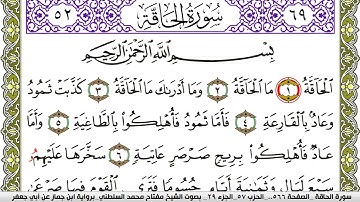 ٥٢ سُورَةُ الحَاقَّةِ ٦٩
بِسْمِ اللَّهِ الرَّحْمَٰنِ الرَّحِيمِ
الْحَاقَّةُ ١ مَا الْحَاقَّةُ ٢ وَمَا أَدْرَىٰكَ مَا الْحَاقَّةُ ٣ كَذَّبَتْ ثَمُودُ
وَعَادُۢ بِالْقَارِعَةِ ٤ فَأَمَّا ثَمُودُ فَأُهْلِكُوا بِالطَّاغِيَةِ ٥ وَأَمَّا
عَادٌ فَأُهْلِكُوا بِرِيحٍ صَرْصَرٍ عَاتِيَةٍ ٦ سَخَّرَهَا عَلَيْهِمُ
سَبْعَ لَيَالٍ وَثَمَٰنِيَةَ أَيَّامٍ حُسُومًا فَتَرَى الْقَوْمَ فِيهَا
سورة الحاقة - الصفحة ٥٦٦ - الحزب ٥٧ - الجزء ٢٩ بصوت الشيخ مفتاح محمد السلطني برواية ابن جماز عن أبي جعفر